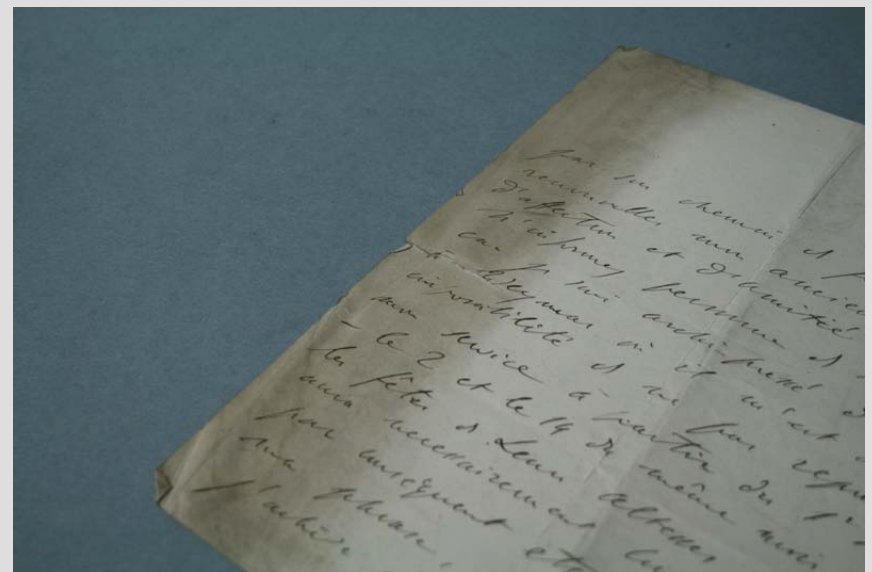 par un chemin d
renouveller mon ancien
d'affection et d'amitié
N'informez personne d
car je suis archi-pressé d
à Weymar où il m'est
impossibilité d ne pas repr
mon service à partir du 1
– le 2 et le 14 du même mois
les fêtes d Leurs altesses
aura necessairement lu
par consequent et
ma phrase,
j'arrive